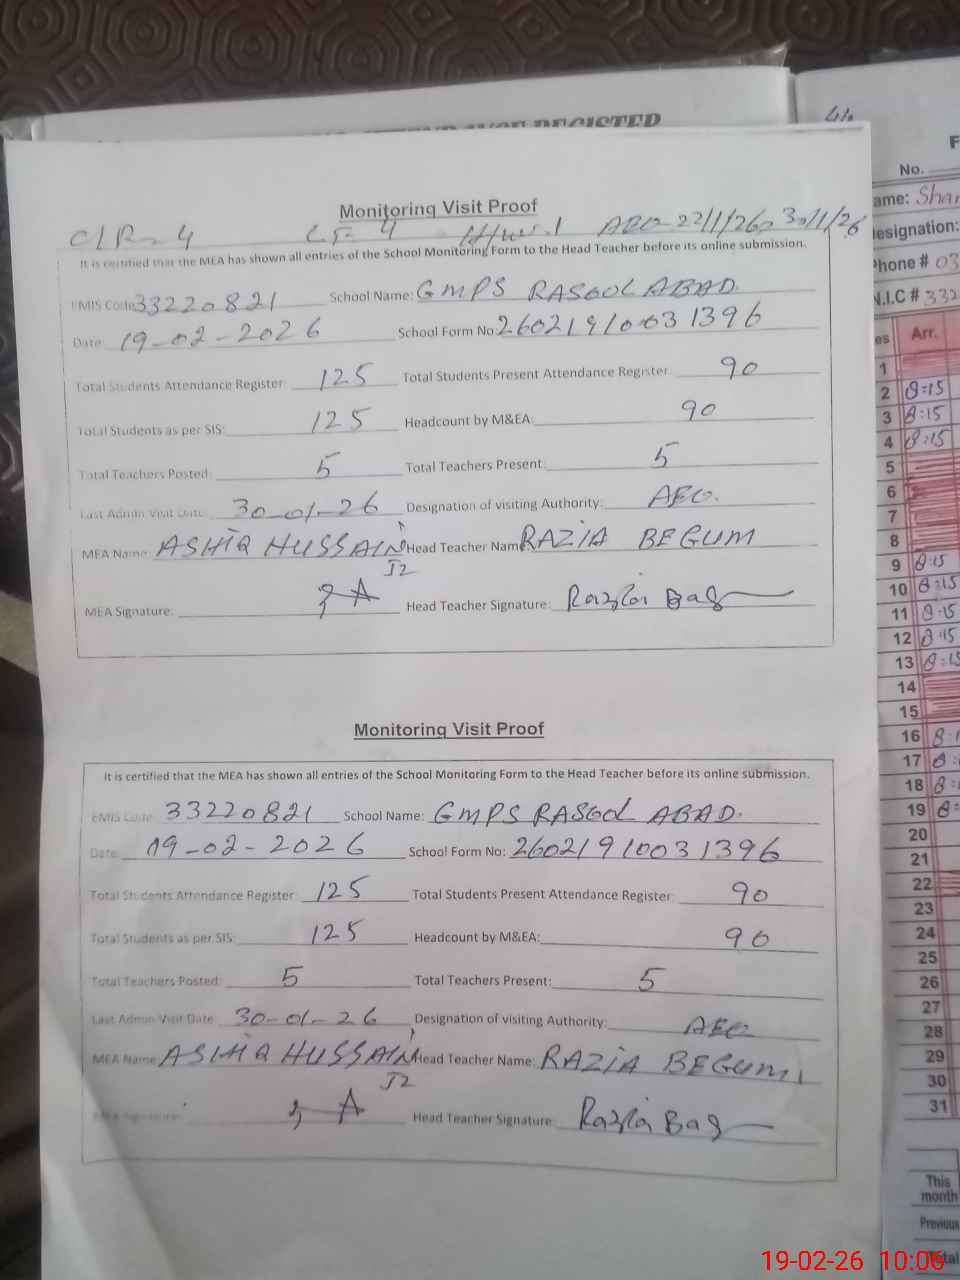 ATTENDANCE REGISTER
Monitoring Visit Proof
C/R-4 AEO-22/1/26, 30/1/26
It is certified that the MEA has shown all entries of the School Monitoring Form to the Head Teacher before its online submission.
EMIS Code 33220821 School Name: GMPS RASOOL ABAD
Date 19-02-2026 School Form No: 26021910031396
Total Students Attendance Register: 125 Total Students Present Attendance Register: 90
Total Students as per SIS: 125 Headcount by M&EA: 90
Total Teachers Posted: 5 Total Teachers Present: 5
Last Admin Visit Date: 30-01-26 Designation of visiting Authority: AEO.
MEA Name: ASHIQ HUSSAIN Head Teacher Name RAZIA BEGUM
J2
MEA Signature: Head Teacher Signature: Razia Beg
Monitoring Visit Proof
It is certified that the MEA has shown all entries of the School Monitoring Form to the Head Teacher before its online submission.
EMIS Code 33220821 School Name: GMPS RASOOL ABAD.
Date: 19-02-2026 School Form No: 26021910031396
Total Students Attendance Register: 125 Total Students Present Attendance Register: 90
Total Students as per SIS: 125 Headcount by M&EA: 90
Total Teachers Posted: 5 Total Teachers Present: 5
Last Admin Visit Date 30-01-26 Designation of visiting Authority: AEO
MEA Name: ASHIQ HUSSAIN Head Teacher Name: RAZIA BEGUM
J2
MEA Signature: Head Teacher Signature: Razia Beg
No.
ame: Shar
esignation:
Phone # 03
N.I.C # 332
es Arr.
1
2 8:15
3 8:15
4 8:15
5
6
7
8
9 8:15
10 8:15
11 8:15
12 8:15
13 8:15
14
15
16 8:1
17 8:
18 8:
19 8:
20
21
22
23
24
25
26
27
28
29
30
31
This
month
Previous
Total
19-02-26 10:06